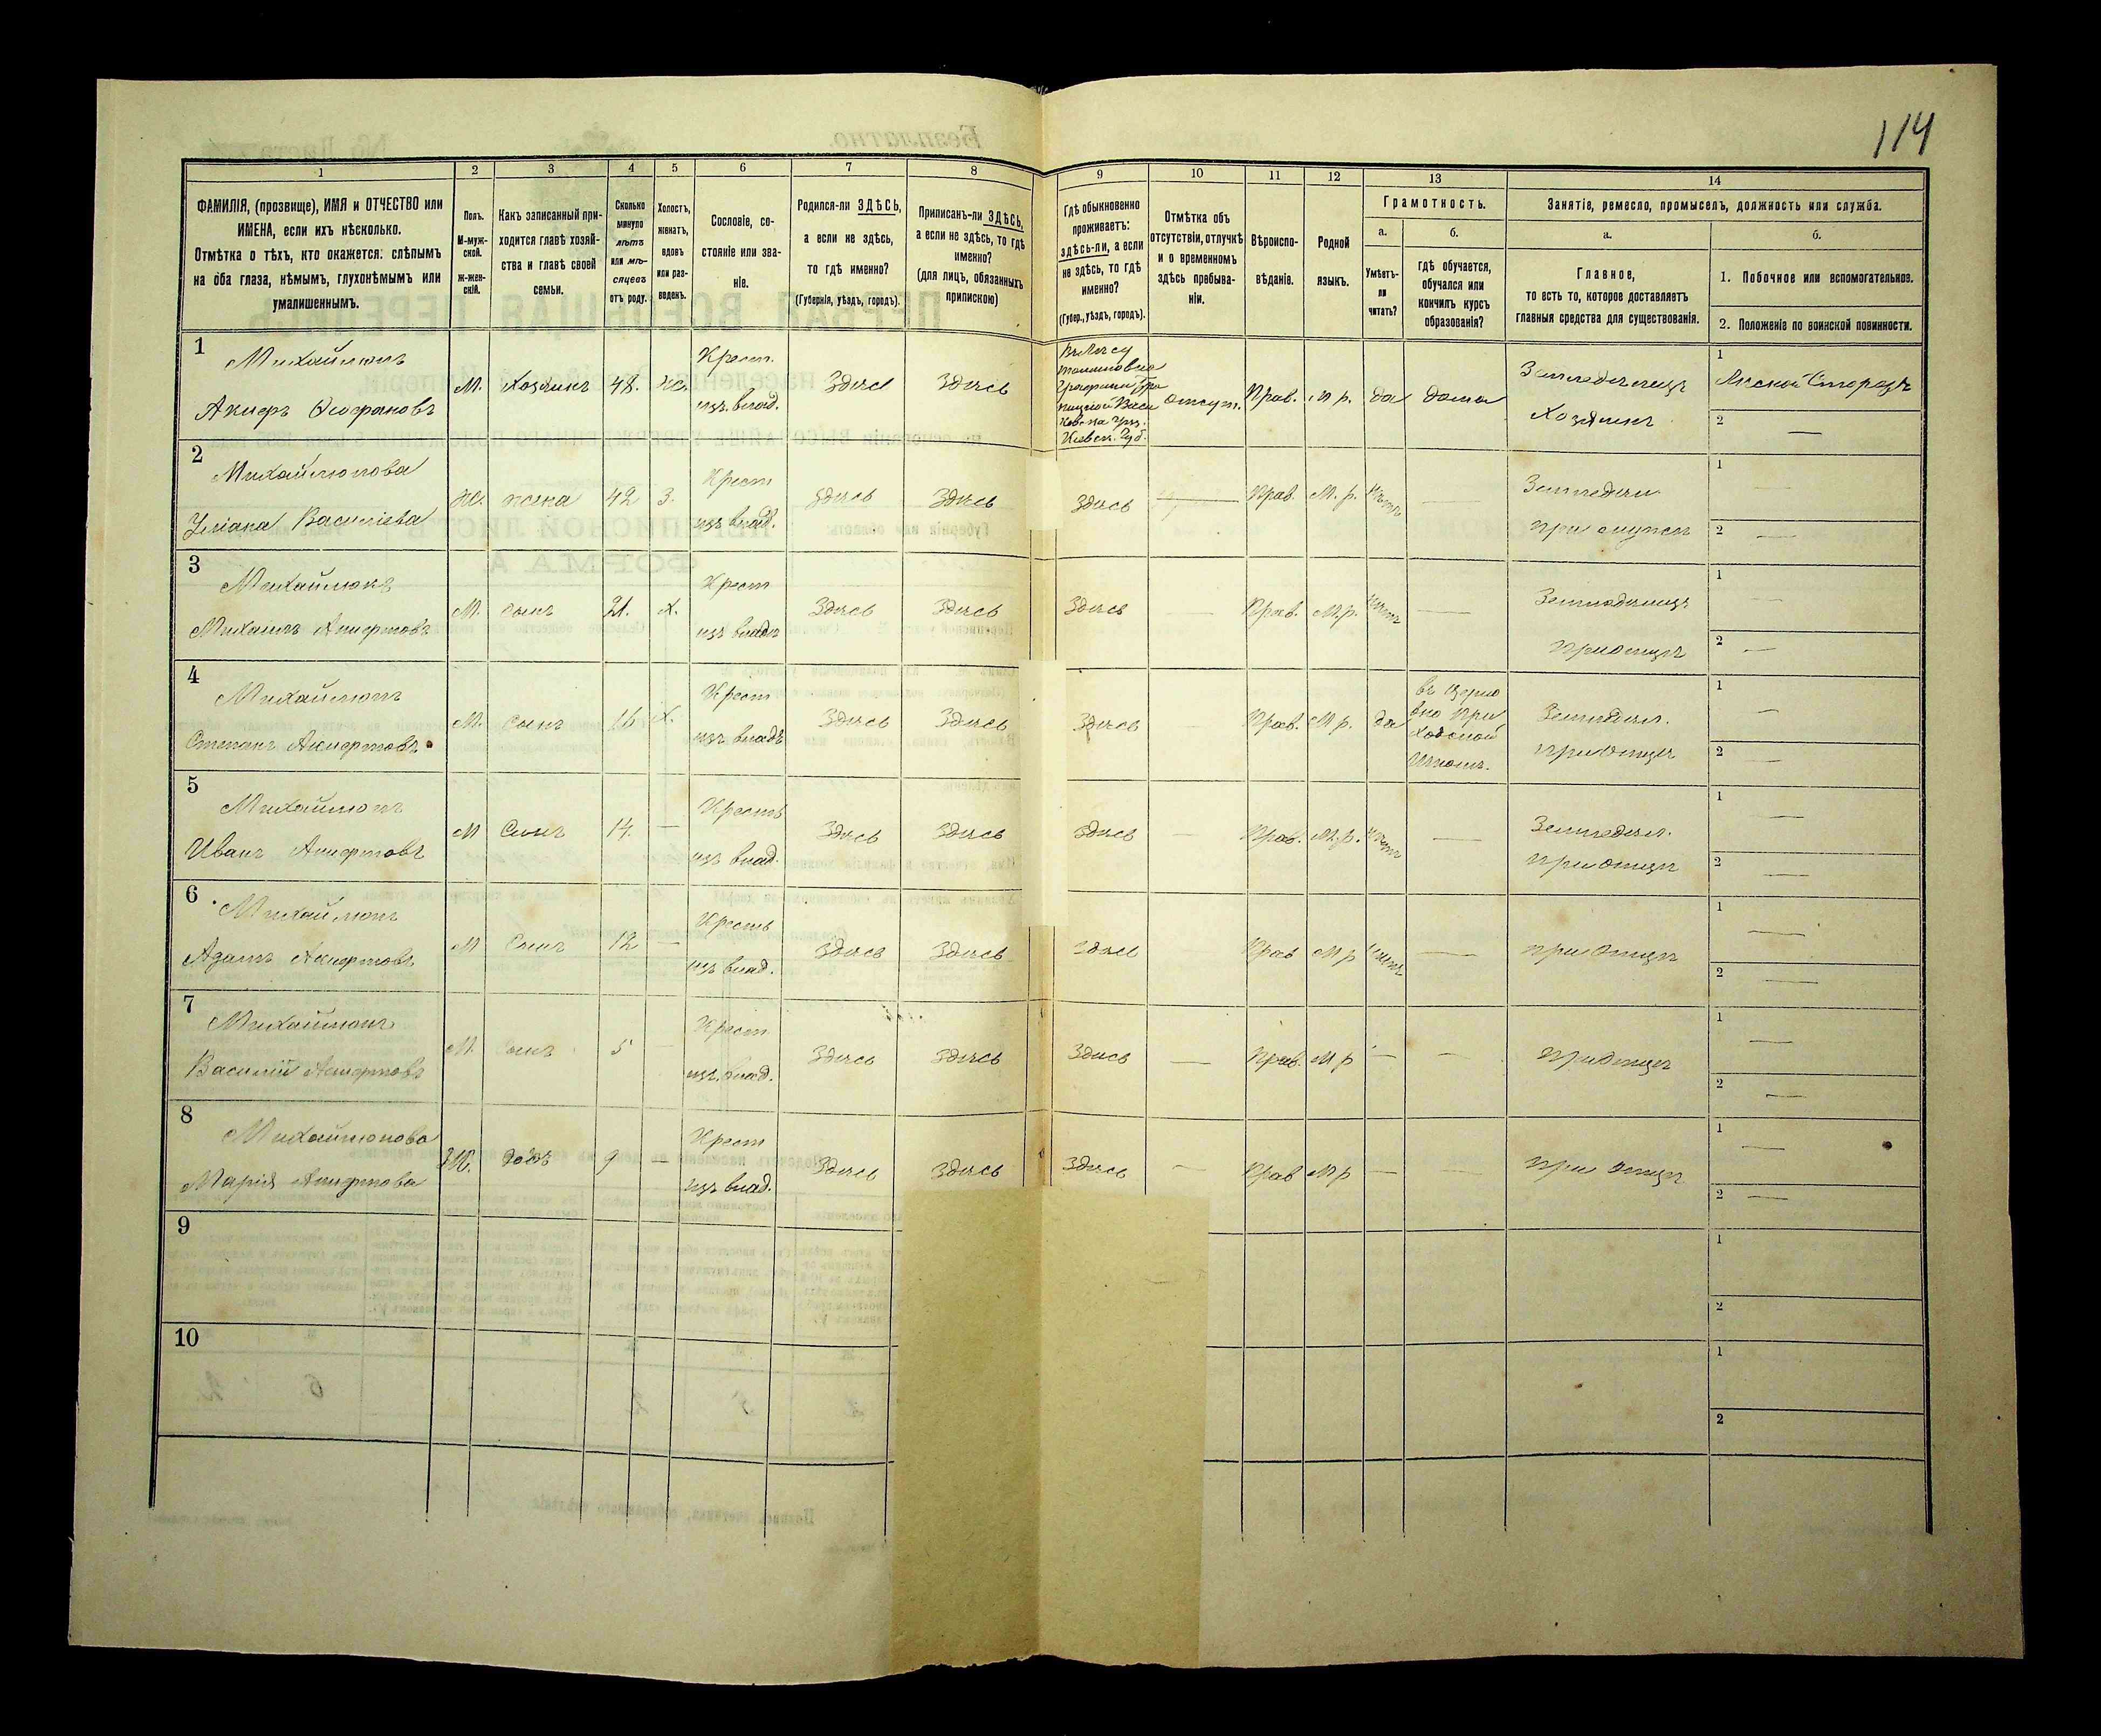 114
1 2 3 4 5 6 7 8 9 10 11 12 13 14
ФАМИЛІЯ, (прозвище), ИМЯ и ОТЧЕСТВО или
ИМЕНА, если ихъ нѣсколько.
Отмѣтка о тѣхъ, кто окажется: слѣпымъ
на оба глаза, нѣмымъ, глухонѣмымъ или
умалишеннымъ.
Полъ.
М-муж-
ской.
ж-жен-
скій.
Какъ записанный при-
ходится главѣ хозяй-
ства и главѣ своей
семьи.
Сколько
минуло
лѣтъ
или мѣ-
сяцевъ
отъ роду.
Холостъ,
женатъ,
вдовъ
или раз-
веденъ.
Сословіе, со-
стояніе или зва-
ніе.
Родился-ли ЗДѢСЬ,
а если не здѣсь,
то гдѣ именно?
(Губернія, уѣздъ, городъ).
Приписанъ-ли ЗДѢСЬ,
а если не здѣсь, то гдѣ
именно?
(для лицъ, обязанныхъ
припискою)
Гдѣ обыкновенно
проживаетъ:
здѣсь-ли, а если
не здѣсь, то гдѣ
именно?
(Губер., уѣздъ, городъ).
Отмѣтка объ
отсутствіи, отлучкѣ
и о временномъ
здѣсь пребыва-
ніи.
Вѣроиспо-
вѣданіе.
Родной
языкъ.
Грамотность.
а.
Умѣетъ-
ли
читать?
б.
гдѣ обучается,
обучался или
кончилъ курсъ
образованія?
Занятіе, ремесло, промыселъ, должность или служба.
а.
Главное,
то есть то, которое доставляетъ
главныя средства для существованія.
б.
1. Побочное или вспомогательное.
2. Положеніе по воинской повинности.
1 Михайлюкъ
Акифъ Феофановъ
М. Хозяинъ 48. ж. Крест.
изъ влад. Здѣсь Здѣсь
Въ Лѣсу
Графини
Кіевск. Губ.
отсут. Прав. М р. да дома
Земледѣлецъ
Хозяинъ
1 Лѣсной Сторожъ
2 —
2 Михайлюкова
Уліана Василіева
Ж. жена 42 з. Крест
изъ влад. Здѣсь Здѣсь Здѣсь — Прав. М. р. нѣтъ —
Земледѣл.
при
1 —
2 —
3 Михайлюкъ
Михаилъ Акифовъ
М. сынъ 21. х. Крест
изъ влад Здѣсь Здѣсь Здѣсь — Прав. М.р. нѣтъ —
Земледѣлецъ
при отцѣ
1 —
2 —
4 Михайлюкъ
Степанъ Акифовъ
М. Сынъ 16 х. Крест
изъ влад Здѣсь Здѣсь Здѣсь — Прав. М р. да
въ Церко
вно При
ходской
Школѣ.
Земледѣл.
при Отцѣ
1 —
2 —
5 Михайлюкъ
Иванъ Акифовъ
М Сынъ 14. — Крестъ
изъ влад. Здѣсь Здѣсь Здѣсь — Прав. М.р. нѣтъ —
Земледѣл.
при Отцѣ
1 —
2 —
6 Михайлюкъ
Адамъ Акифовъ
М Сынъ 12 — Крестъ
изъ влад. Здѣсь Здѣсь Здѣсь — Прав М р нѣтъ —
при Отцѣ
1 —
2 —
7 Михайлюкъ
Василій Акифовъ
М. сынъ 5 — Крест
изъ влад. Здѣсь Здѣсь Здѣсь — Прав. М р — —
при Отцѣ
1 —
2 —
8 Михайлюкова
Марія Акифова
Ж. дочь 9 — Крест
изъ влад. Здѣсь Здѣсь Здѣсь — Прав М р — —
при Отцѣ
1 —
2 —
9
1
2
10
1
2